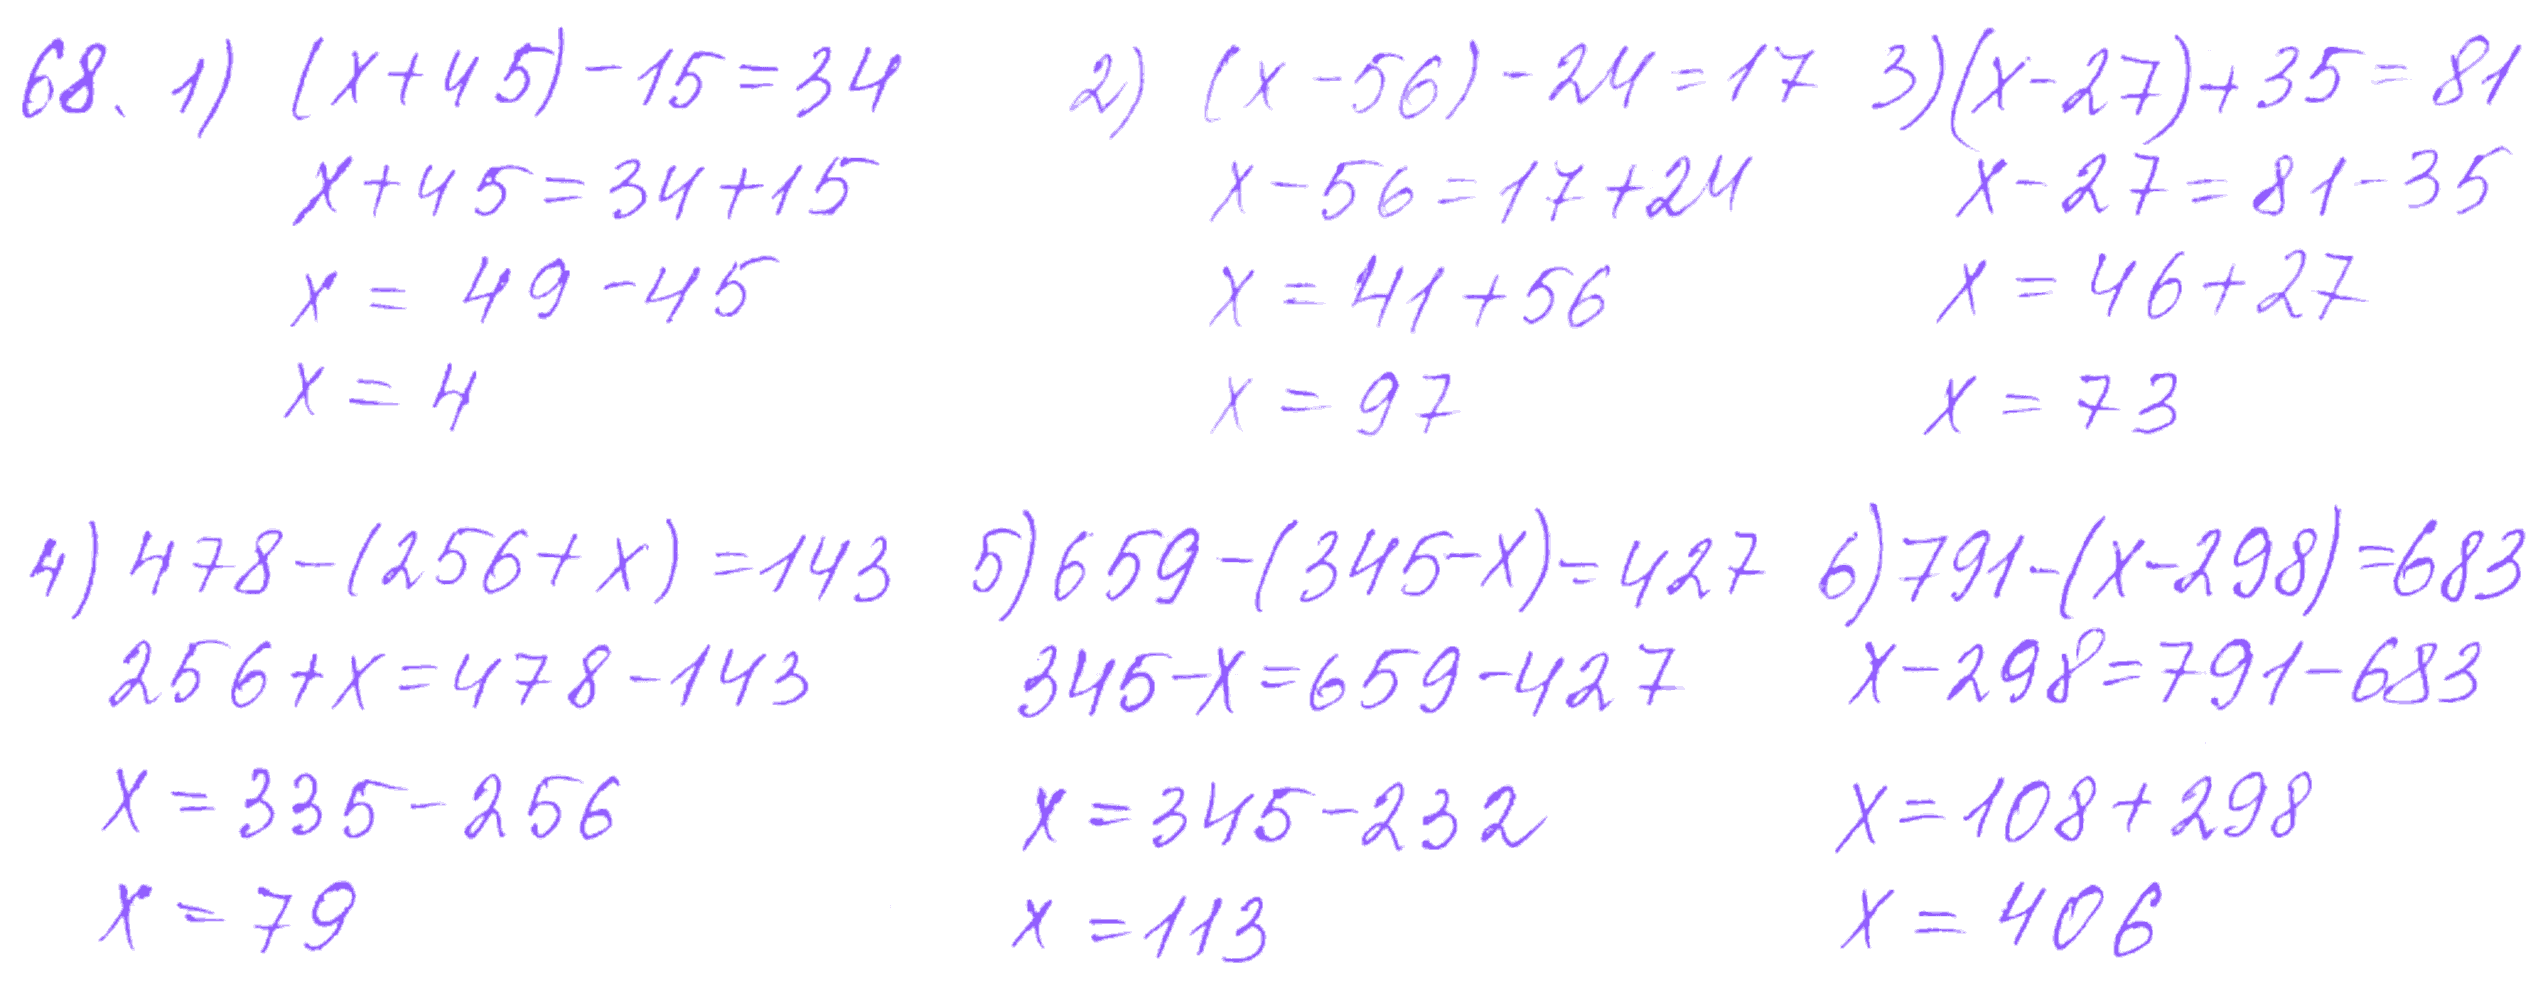 68. 1) (x+45)-15=34
x+45=34+15
x = 49-45
x = 4
2) (x-56)-24=17
x-56=17+24
x = 41+56
x = 97
3) (x-27)+35=81
x-27=81-35
x = 46+27
x = 73
4) 478-(256+x)=143
256+x=478-143
x=335-256
x=79
5) 659-(345-x)=427
345-x=659-427
x=345-232
x=113
6) 791-(x-298)=683
x-298=791-683
x=108+298
x=406